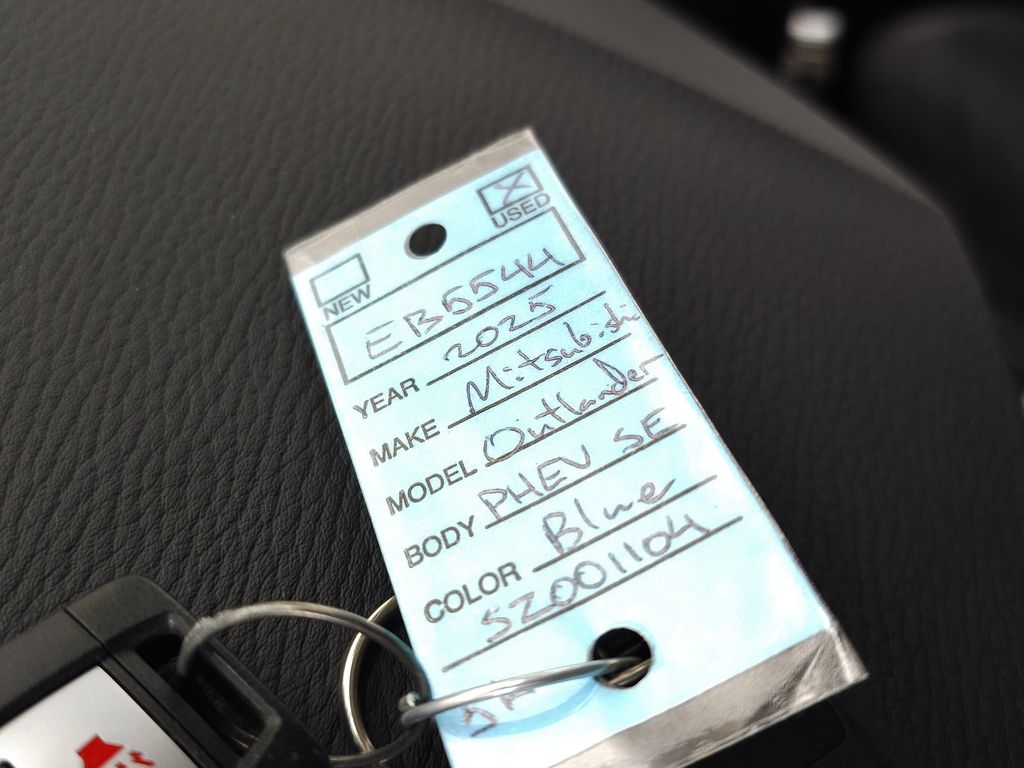 X
USED
NEW
EB5544
YEAR 2025
MAKE Mitsubishi
MODEL Outlander
BODY PHEV SE
COLOR Blue
SZ001104